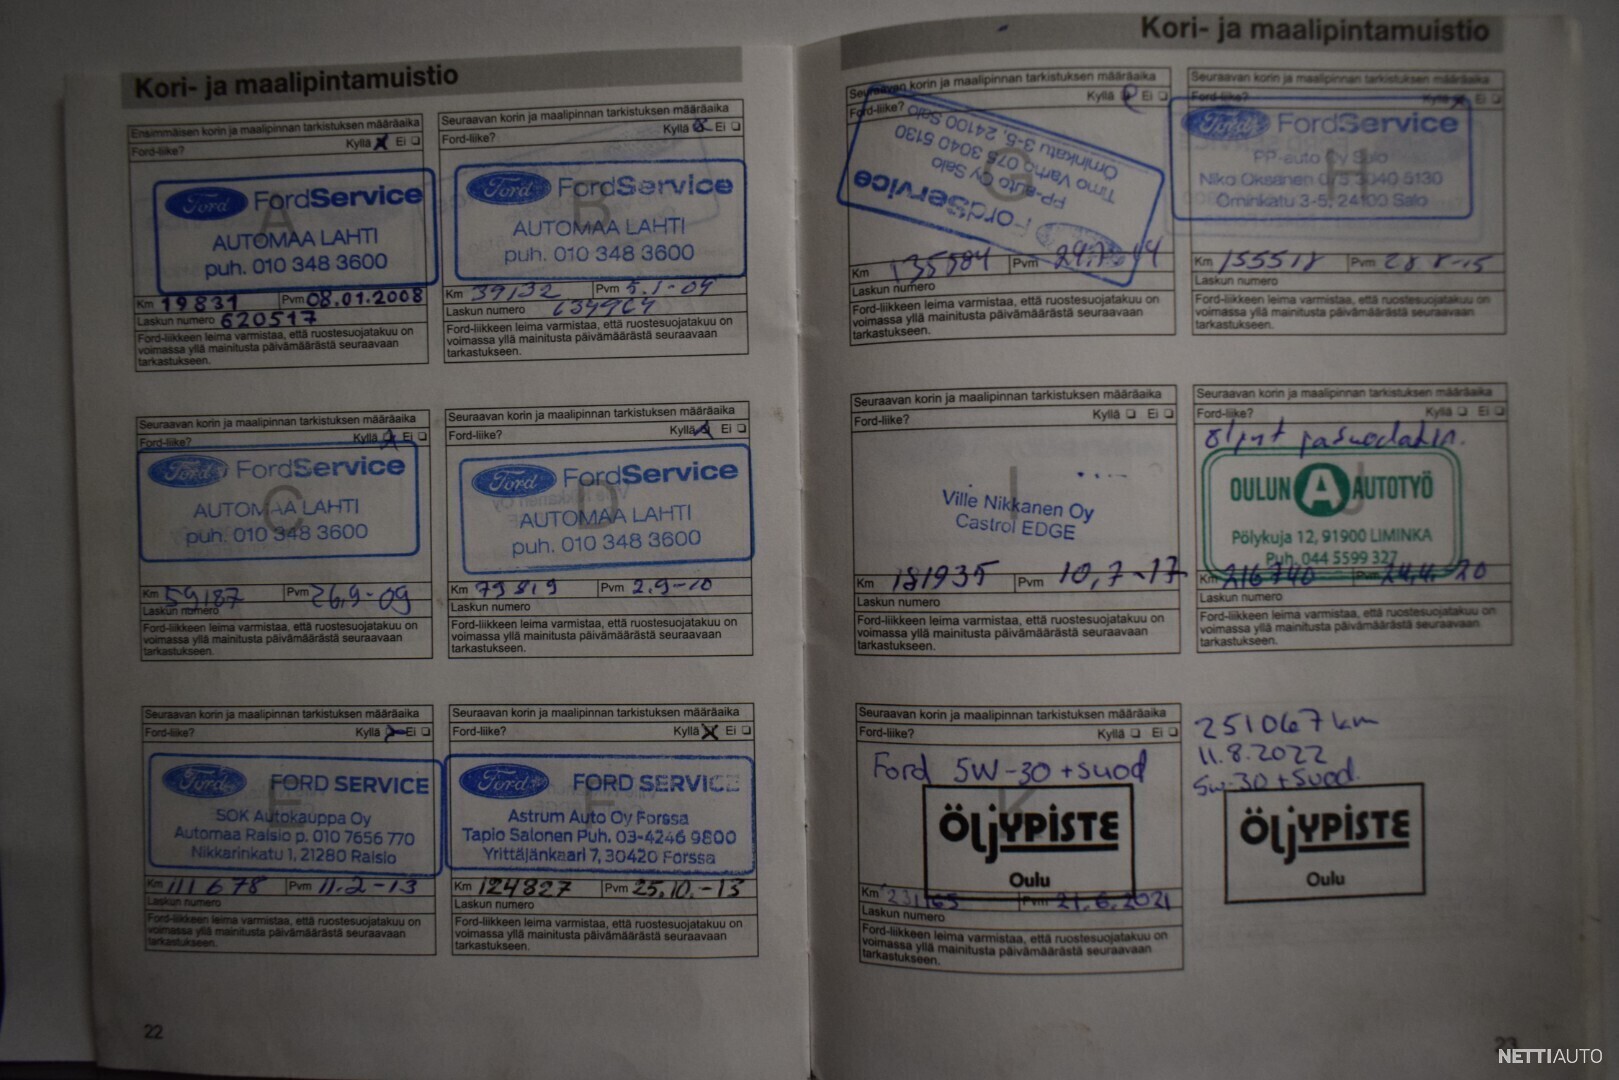 Kori- ja maalipintamuistio
Ensimmäisen korin ja maalipinnan tarkistuksen määräaika
Ford-liike? Kyllä Ei
A
Ford FordService
AUTOMAA LAHTI
puh. 010 348 3600
Km 19831 Pvm 08.01.2008
Laskun numero 620517
Ford-liikkeen leima varmistaa, että ruostesuojatakuu on
voimassa yllä mainitusta päivämäärästä seuraavaan
tarkastukseen.
Seuraavan korin ja maalipinnan tarkistuksen määräaika
Ford-liike? Kyllä Ei
B
Ford FordService
AUTOMAA LAHTI
puh. 010 348 3600
Km 39132 Pvm 5.1-09
Laskun numero
Ford-liikkeen leima varmistaa, että ruostesuojatakuu on
voimassa yllä mainitusta päivämäärästä seuraavaan
tarkastukseen.
Seuraavan korin ja maalipinnan tarkistuksen määräaika
Ford-liike? Kyllä Ei
C
Ford FordService
AUTOMAA LAHTI
puh. 010 348 3600
Km 59187 Pvm 26.9-09
Laskun numero
Ford-liikkeen leima varmistaa, että ruostesuojatakuu on
voimassa yllä mainitusta päivämäärästä seuraavaan
tarkastukseen.
Seuraavan korin ja maalipinnan tarkistuksen määräaika
Ford-liike? Kyllä Ei
D
Ford FordService
AUTOMAA LAHTI
puh. 010 348 3600
Km Pvm 2.9-10
Laskun numero
Ford-liikkeen leima varmistaa, että ruostesuojatakuu on
voimassa yllä mainitusta päivämäärästä seuraavaan
tarkastukseen.
Seuraavan korin ja maalipinnan tarkistuksen määräaika
Ford-liike? Kyllä Ei
E
Ford FORD SERVICE
SOK Autokauppa Oy
Automaa Raisio p. 010 7656 770
Nikkarinkatu 1, 21280 Raisio
Km 111678 Pvm 11.2-13
Laskun numero
Ford-liikkeen leima varmistaa, että ruostesuojatakuu on
voimassa yllä mainitusta päivämäärästä seuraavaan
tarkastukseen.
Seuraavan korin ja maalipinnan tarkistuksen määräaika
Ford-liike? Kyllä Ei
F
Ford FORD SERVICE
Astrum Auto Oy Forssa
Tapio Salonen Puh. 03-4246 9800
Yrittäjänkaari 7, 30420 Forssa
Km 124827 Pvm 25.10.-13
Laskun numero
Ford-liikkeen leima varmistaa, että ruostesuojatakuu on
voimassa yllä mainitusta päivämäärästä seuraavaan
tarkastukseen.
22
Kori- ja maalipintamuistio
Seuraavan korin ja maalipinnan tarkistuksen määräaika
Ford-liike? Kyllä Ei
G
Ford FordService
PP-auto Oy Salo
Timo Varho 075 3040 5130
Örninkatu 3-5, 24100 Salo
Km 135584 Pvm 29.7.-14
Laskun numero
Ford-liikkeen leima varmistaa, että ruostesuojatakuu on
voimassa yllä mainitusta päivämäärästä seuraavaan
tarkastukseen.
Seuraavan korin ja maalipinnan tarkistuksen määräaika
Ford-liike? Kyllä Ei
H
Ford FordService
PP-auto Oy Salo
Niko Oksanen 075 3040 5130
Örninkatu 3-5, 24100 Salo
Km 155518 Pvm 28.8-15
Laskun numero
Ford-liikkeen leima varmistaa, että ruostesuojatakuu on
voimassa yllä mainitusta päivämäärästä seuraavaan
tarkastukseen.
Seuraavan korin ja maalipinnan tarkistuksen määräaika
Ford-liike? Kyllä Ei
I
Ville Nikkanen Oy
Castrol EDGE
Km 181935 Pvm 10,7-17
Laskun numero
Ford-liikkeen leima varmistaa, että ruostesuojatakuu on
voimassa yllä mainitusta päivämäärästä seuraavaan
tarkastukseen.
Seuraavan korin ja maalipinnan tarkistuksen määräaika
Ford-liike? Kyllä Ei
J
OULUN A AUTOTYÖ
Pölykuja 12, 91900 LIMINKA
Puh. 044 5599 327
Km 216740 Pvm 24.4.20
Laskun numero
Ford-liikkeen leima varmistaa, että ruostesuojatakuu on
voimassa yllä mainitusta päivämäärästä seuraavaan
tarkastukseen.
Seuraavan korin ja maalipinnan tarkistuksen määräaika
Ford-liike? Kyllä Ei
Ford 5W-30 +suod
K
ÖljYPISTE
Oulu
Km 231165 Pvm 21.6.2021
Laskun numero
Ford-liikkeen leima varmistaa, että ruostesuojatakuu on
voimassa yllä mainitusta päivämäärästä seuraavaan
tarkastukseen.
251067 km
11.8.2022
5w-30 +suod.
ÖljYPISTE
Oulu
23
NETTIAUTO